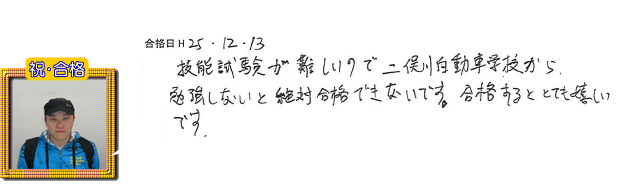 合格日 H 25・12・13
祝・合格
技能試験が難しいので二俣川自動車学校から、
勉強しないと絶対合格できないです。合格するととても嬉しい
です。